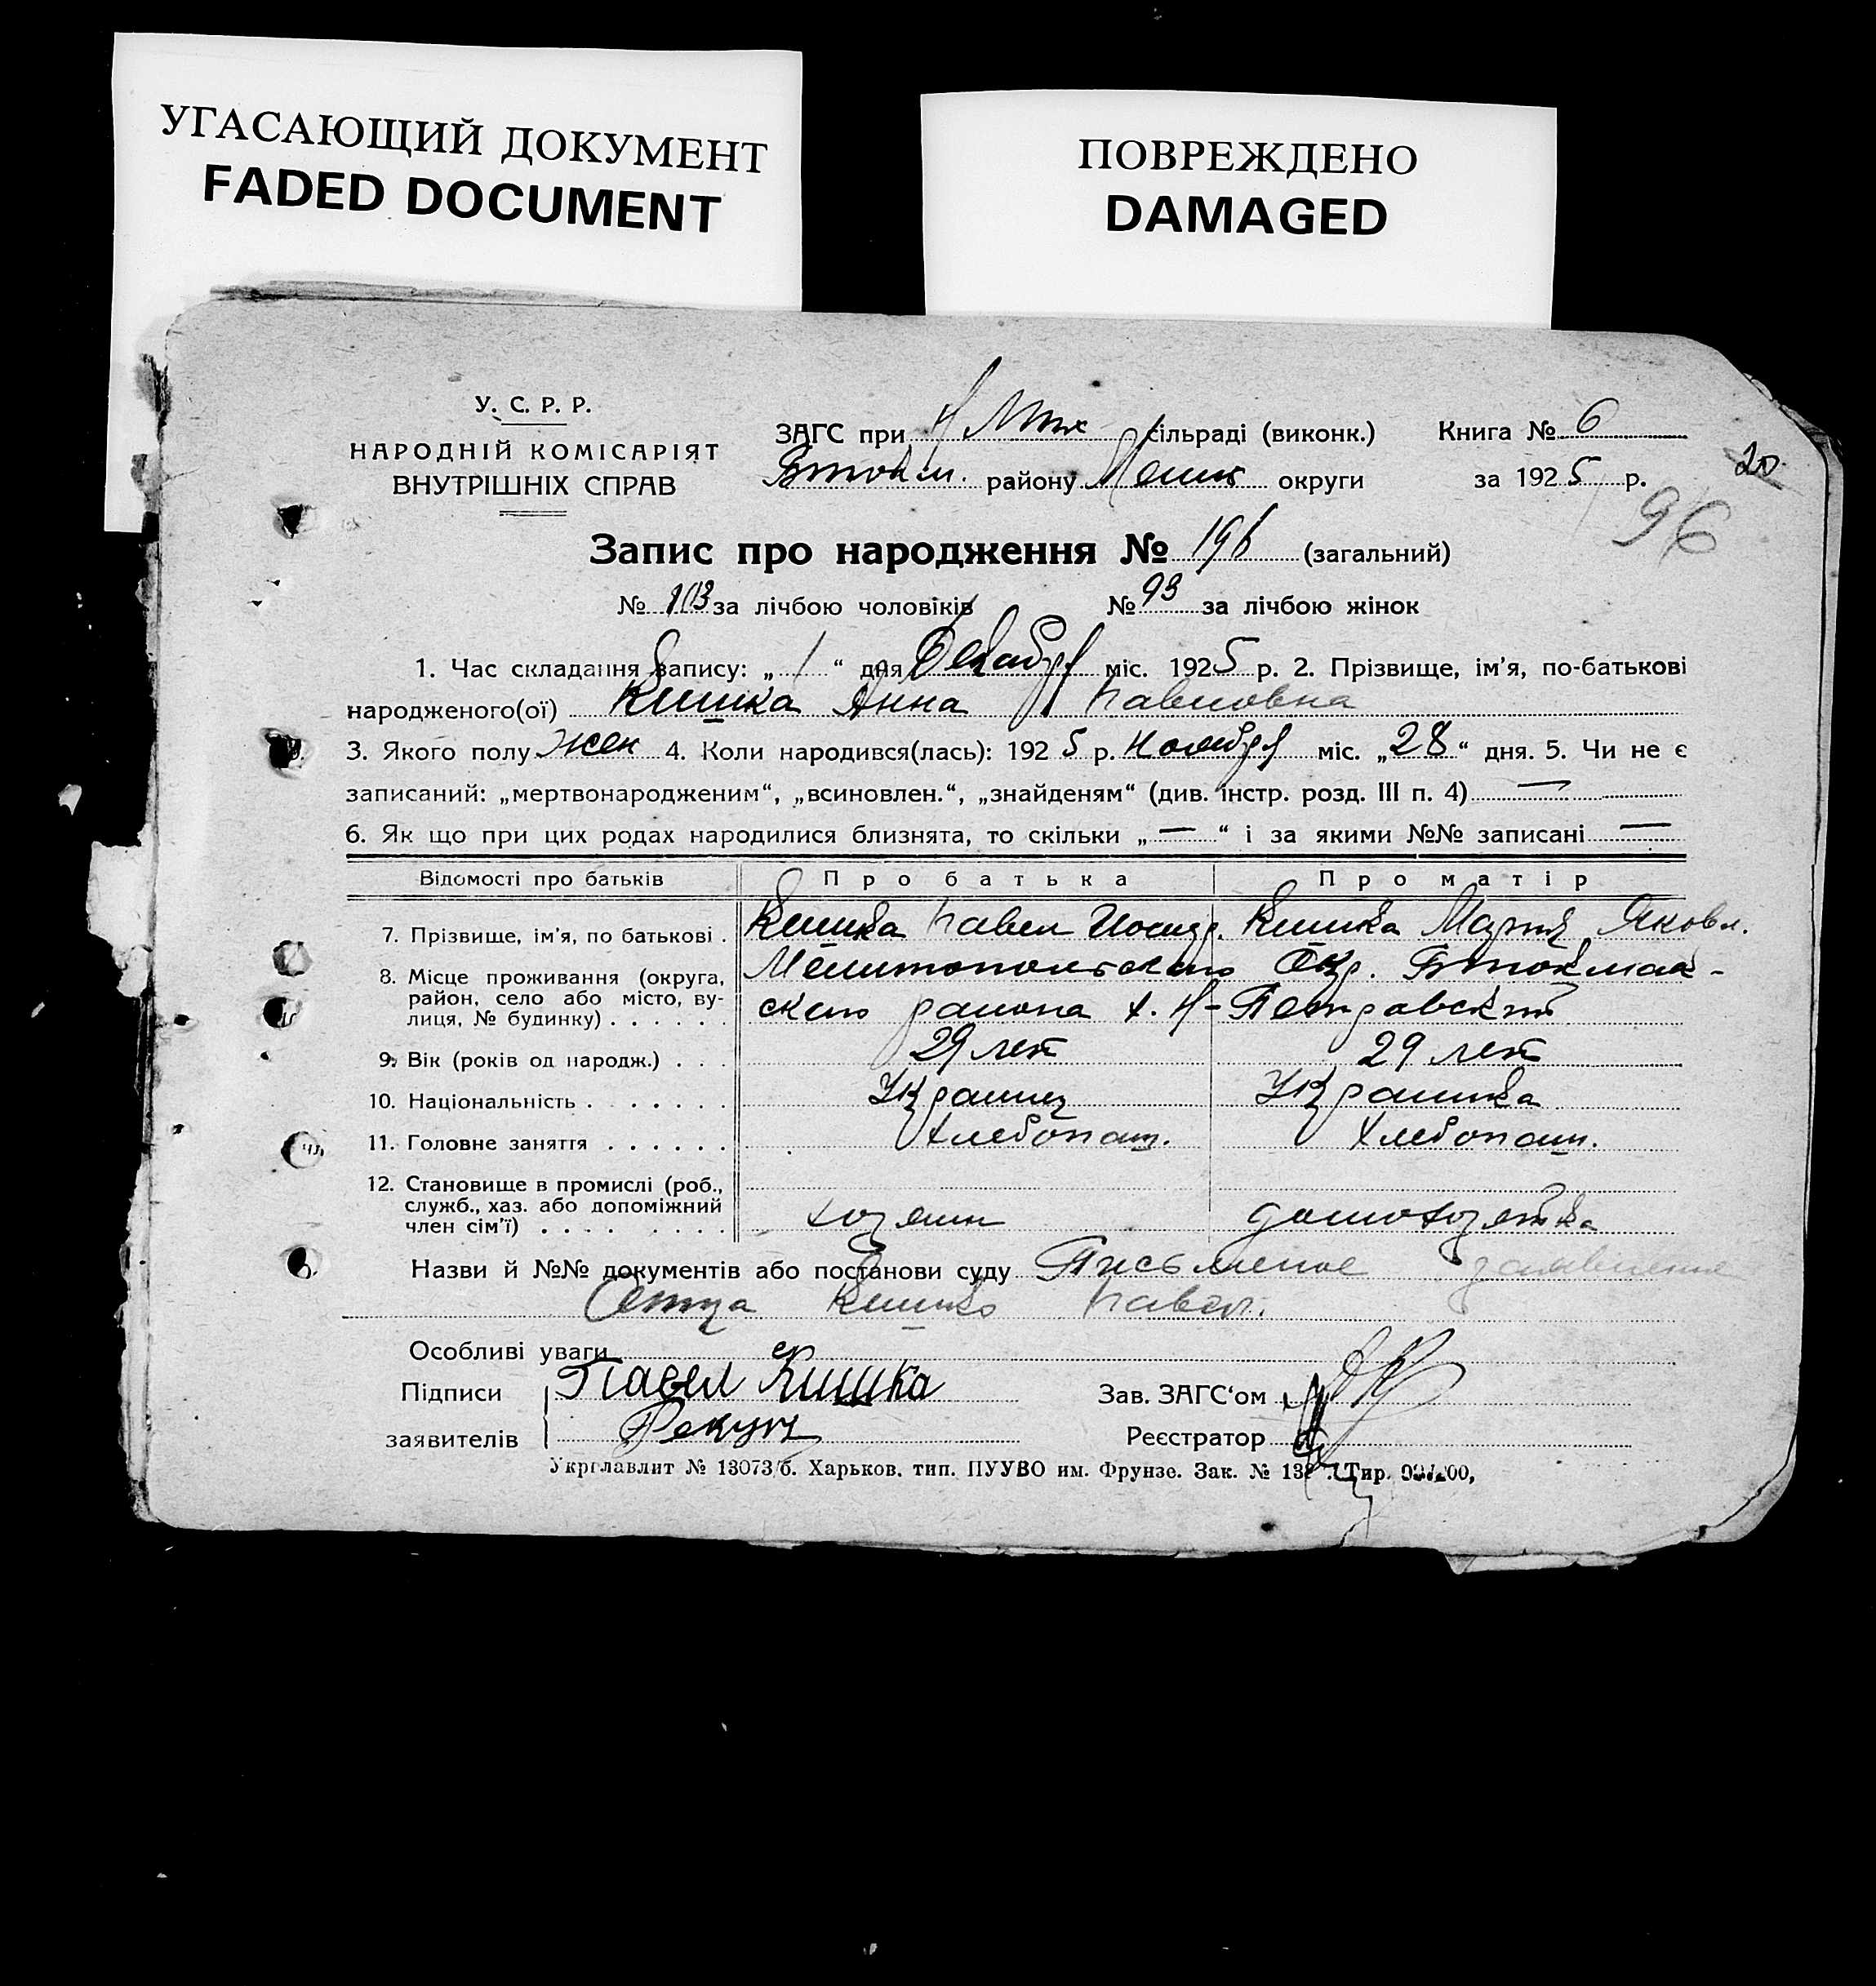 УГАСАЮЩИЙ ДОКУМЕНТ
FADED DOCUMENT
ПОВРЕЖДЕНО
DAMAGED
У. С. Р. Р.
НАРОДНІЙ КОМІСАРІЯТ
ВНУТРІШНІХ СПРАВ
ЗАГС при сільраді (виконк.)
району округи
Книга № 6
за 1925 р.
20
96
Запис про народження № 196 (загальний)
№ 103 за лічбою чоловіків № 93 за лічбою жінок
1. Час складання запису: „ 1 “ дня Декабря міс. 1925 р. 2. Прізвище, ім'я, по-батькові
народженого(ої) Кишка Анна Павловна
3. Якого полу жен 4. Коли народився(лась): 1925 р. Ноября міс. „28“ дня. 5. Чи не є
записаний: „мертвонародженим“, „всиновлен.“, „знайденям“ (див. інстр. розд. III п. 4) —
6. Як що при цих родах народилися близнята, то скільки „ — “ і за якими №№ записані —
Відомості про батьків Про батька Про матір
7. Прізвище, ім'я, по батькові . Кишка Павел Кишка Мария Яковл.
8. Місце проживання (округа, Мелитопольского Окр. Бтокмак-
район, село або місто, ву- ского района х. Н-Петровский
лиця, № будинку) . . . . . .
9. Вік (років од народж.) . . . 29 лет 29 лет
10. Національність . . . . . . Украинец Украинка
11. Головне заняття . . . . . . Хлебопаш. Хлебопаш.
12. Становище в промислі (роб.,
служб., хаз. або допоміжний
член сім'ї) . . . . . . . . хозяин домохозяйка
Назви й №№ документів або постанови суду Письменое заявление
Отца Кишко Павел.
Особливі уваги
Підписи Павел Кишка Зав. ЗАГС‘ом
заявителів Реєстратор
Укрглавлит № 13073/б. Харьков. тип. ПУУВО им. Фрунзе. Зак. № Тир.